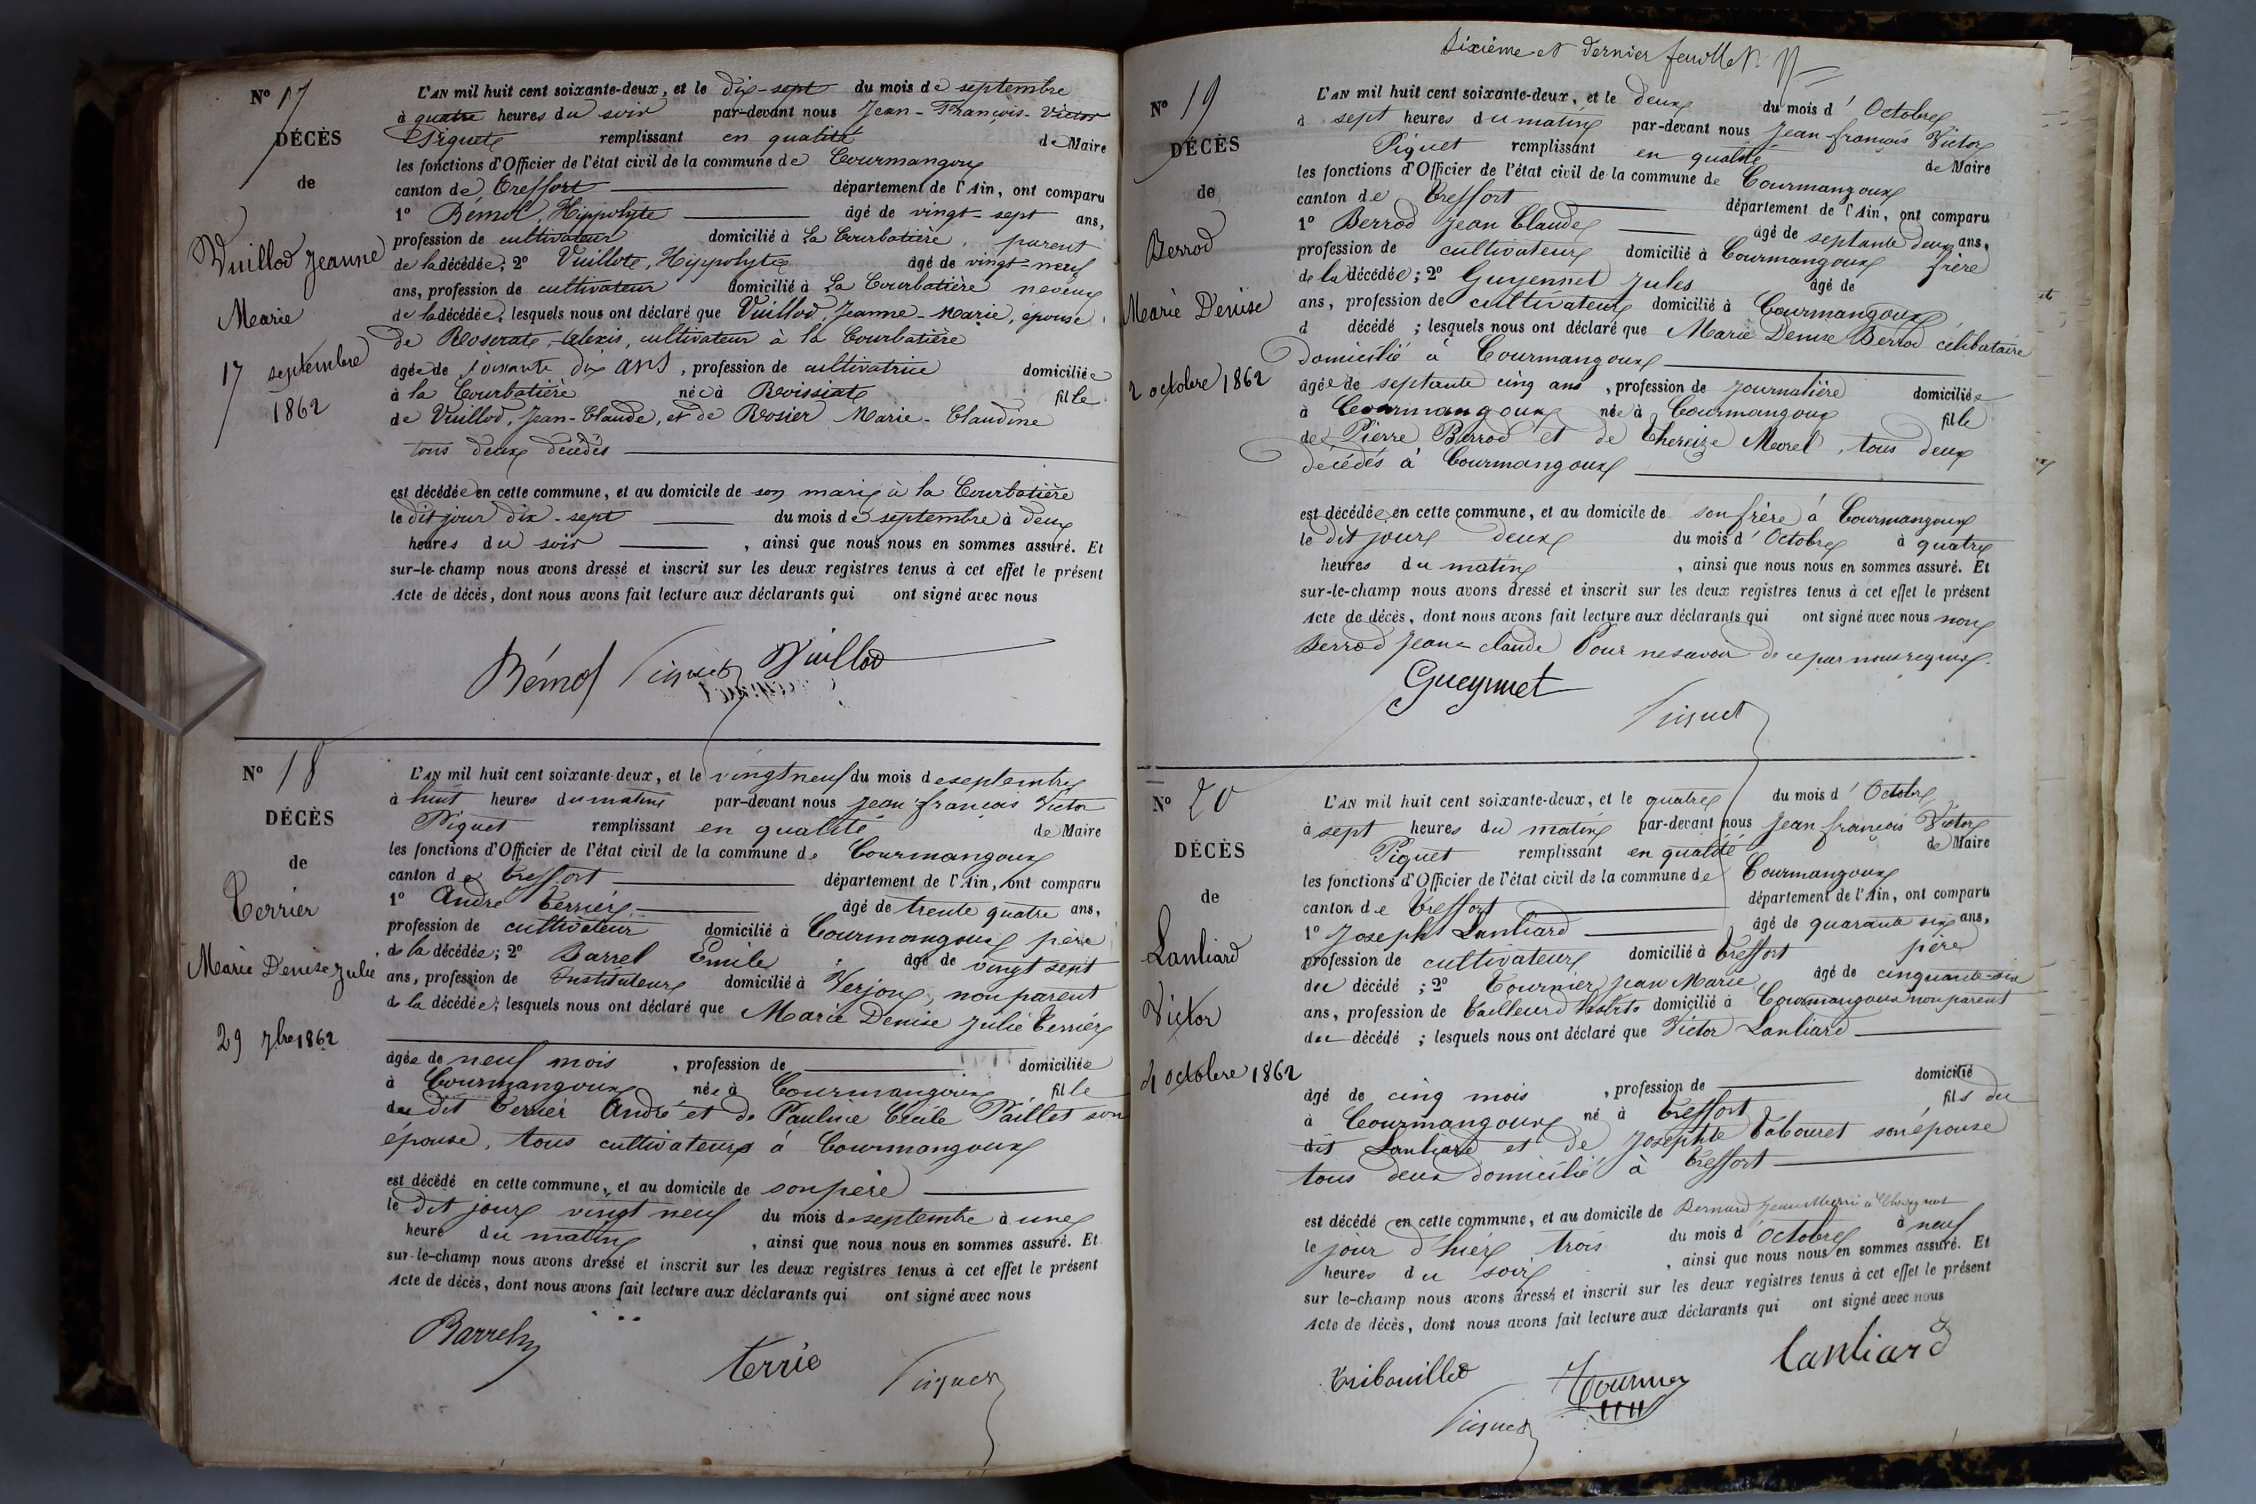 N° 17
DÉCÈS
de
Vuillod Jeanne
Marie
17 septembre
1862
L'AN mil huit cent soixante-deux, et le dix-sept du mois de septembre
à quatre heures du soir par-devant nous Jean-François-Victor
Piguet remplissant en qualité de Maire
les fonctions d'Officier de l'état civil de la commune de Courmangoux
canton de Treffort département de l'Ain, ont comparu
1° Bémol, Hippolyte âgé de vingt-sept ans,
profession de cultivateur domicilié à La Courbatière, parent
de la décédée; 2° Vuillote, Hippolyte âgé de vingt-neuf
ans, profession de cultivateur domicilié à La Courbatière neveux
de la décédée, lesquels nous ont déclaré que Vuillod, Jeanne-Marie, épouse
de Alexis, cultivateur à la Courbatière
âgée de soixante dix ans, profession de cultivatrice domiciliée
à la Courbatière née à Roissiate fille
de Vuillod, Jean-Claude, et de Rosier Marie-Claudine
tous deux décédés
est décédée en cette commune, et au domicile de son marie à la Courbatière
le dit jour dix-sept du mois de septembre à deux
heures du soir, ainsi que nous nous en sommes assuré. Et
sur-le-champ nous avons dressé et inscrit sur les deux registres tenus à cet effet le présent
Acte de décès, dont nous avons fait lecture aux déclarants qui ont signé avec nous
Bémol Piguet Vuillod
N° 18
DÉCÈS
de
Terrier
Marie Denise Julie
29 7bre 1862
L'AN mil huit cent soixante-deux, et le vingt neuf du mois de septembre
à huit heures du matin par-devant nous Jean françois Victor
Piguet remplissant en qualité de Maire
les fonctions d'Officier de l'état civil de la commune de Courmangoux
canton de Treffort département de l'Ain, ont comparu
1° André Terrier âgé de trente quatre ans,
profession de cultivateur domicilié à Courmangoux père
de la décédée; 2° Barrel Emile âgé de vingt sept
ans, profession de Instituteur domicilié à Verjon, non parent
de la décédée; lesquels nous ont déclaré que Marie Denise Julie Terrier
âgée de neuf mois, profession de domiciliée
à Courmangoux née à Courmangoux fille
du dit Terrier André et de Pauline Cécile Paillet son
épouse, tous cultivateurs à Courmangoux
est décédé en cette commune, et au domicile de son père
le dit jour vingt neuf du mois de septembre à une
heure du matin, ainsi que nous nous en sommes assuré. Et
sur-le-champ nous avons dressé et inscrit sur les deux registres tenus à cet effet le présent
Acte de décès, dont nous avons fait lecture aux déclarants qui ont signé avec nous
Barrel
terrie
Piguet
Sixième et dernier feuillet.
N° 19
DÉCÈS
de
Berrod
Marie Denise
2 octobre 1862
L'AN mil huit cent soixante-deux, et le deux du mois d'Octobre
à sept heures du matin par-devant nous Jean françois Victor
Piguet remplissant en qualité de Maire
les fonctions d'Officier de l'état civil de la commune de Courmangoux
canton de Treffort département de l'Ain, ont comparu
1° Berrod Jean Claude âgé de septante deux ans,
profession de cultivateur domicilié à Courmangoux frère
de la décédée; 2° Guyennet Jules âgé de
ans, profession de cultivateur domicilié à Courmangoux
d décédé; lesquels nous ont déclaré que Marie Denise Berrod célibataire
domicilié à Courmangoux
âgée de septante cinq ans, profession de journalière domiciliée
à Courmangoux née à Courmangoux fille
de Pierre Berrod et de Thereize Morel, tous deux
décédés à Courmangoux
est décédée en cette commune, et au domicile de son frère à Courmangoux
le dit jour deux du mois d'Octobre à quatre
heures du matin, ainsi que nous nous en sommes assuré. Et
sur-le-champ nous avons dressé et inscrit sur les deux registres tenus à cet effet le présent
Acte de décès, dont nous avons fait lecture aux déclarants qui ont signé avec nous non
Berrod Jean-claude Pour ne savoir de ce par nous requis.
Gueynnet
Piguet
N° 20
DÉCÈS
de
Lanliard
Victor
4 octobre 1862
L'AN mil huit cent soixante-deux, et le quatre du mois d'Octobre
à sept heures du matin par-devant nous Jean françois Victor
Piguet remplissant en qualité de Maire
les fonctions d'Officier de l'état civil de la commune de Courmangoux
canton de Treffort département de l'Ain, ont comparu
1° Joseph Lanliard âgé de quarante six ans,
profession de cultivateur domicilié à Treffort père
du décédé; 2° Tournier Jean Marie âgé de cinquante-six
ans, profession de Tailleur d'habits domicilié à Courmangoux non parent
du décédé; lesquels nous ont déclaré que Victor Lanliard
âgé de cinq mois, profession de domicilié
à Courmangoux né à Treffort fils du
dit Lanliard et de Josephte Tabouret son épouse
tous deux domicilié à Treffort
est décédé en cette commune, et au domicile de Bernard Jean Marie à
le jour d'hier trois du mois d'octobre à neuf
heures du soir, ainsi que nous nous en sommes assuré. Et
sur le-champ nous avons dressé et inscrit sur les deux registres tenus à cet effet le présent
Acte de décès, dont nous avons fait lecture aux déclarants qui ont signé avec nous
Tribouillet
Tournier
Lanliard
Piguet